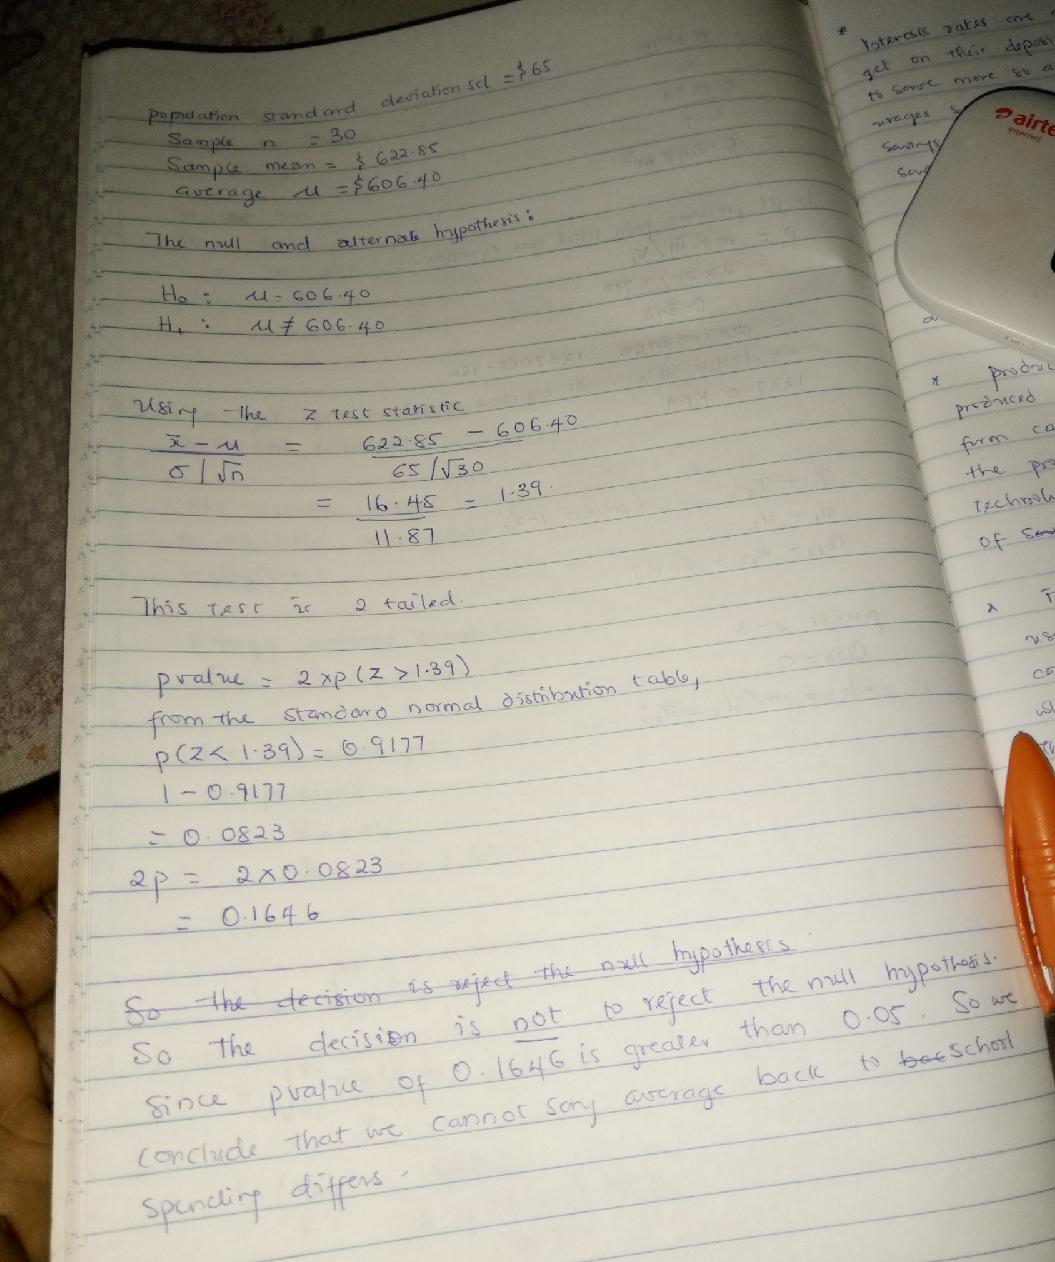 population standard deviation sd = $65
Sample n = 30
Sample mean = $622.85
average μ = $606.40
The null and alternate hypothesis:
H₀ : μ = 606.40
H₁ : μ ≠ 606.40
Using the z test statistic
x̄ - μ / σ/√n = 622.85 - 606.40 / 65/√30
= 16.45 / 11.87 = 1.39
This test is 2 tailed.
pvalue = 2xp(Z > 1.39)
from the standard normal distribution table,
p(Z < 1.39) = 0.9177
1 - 0.9177
= 0.0823
2p = 2x0.0823
= 0.1646
So the decision is reject the null hypothesis
So the decision is not to reject the null hypothesis.
Since pvalue of 0.1646 is greater than 0.05. So we
conclude that we cannot say average back to school
spending differs.
* Interests rates are
get on their
to save more so
savings
airte
internet
* 
produced
form
the
of